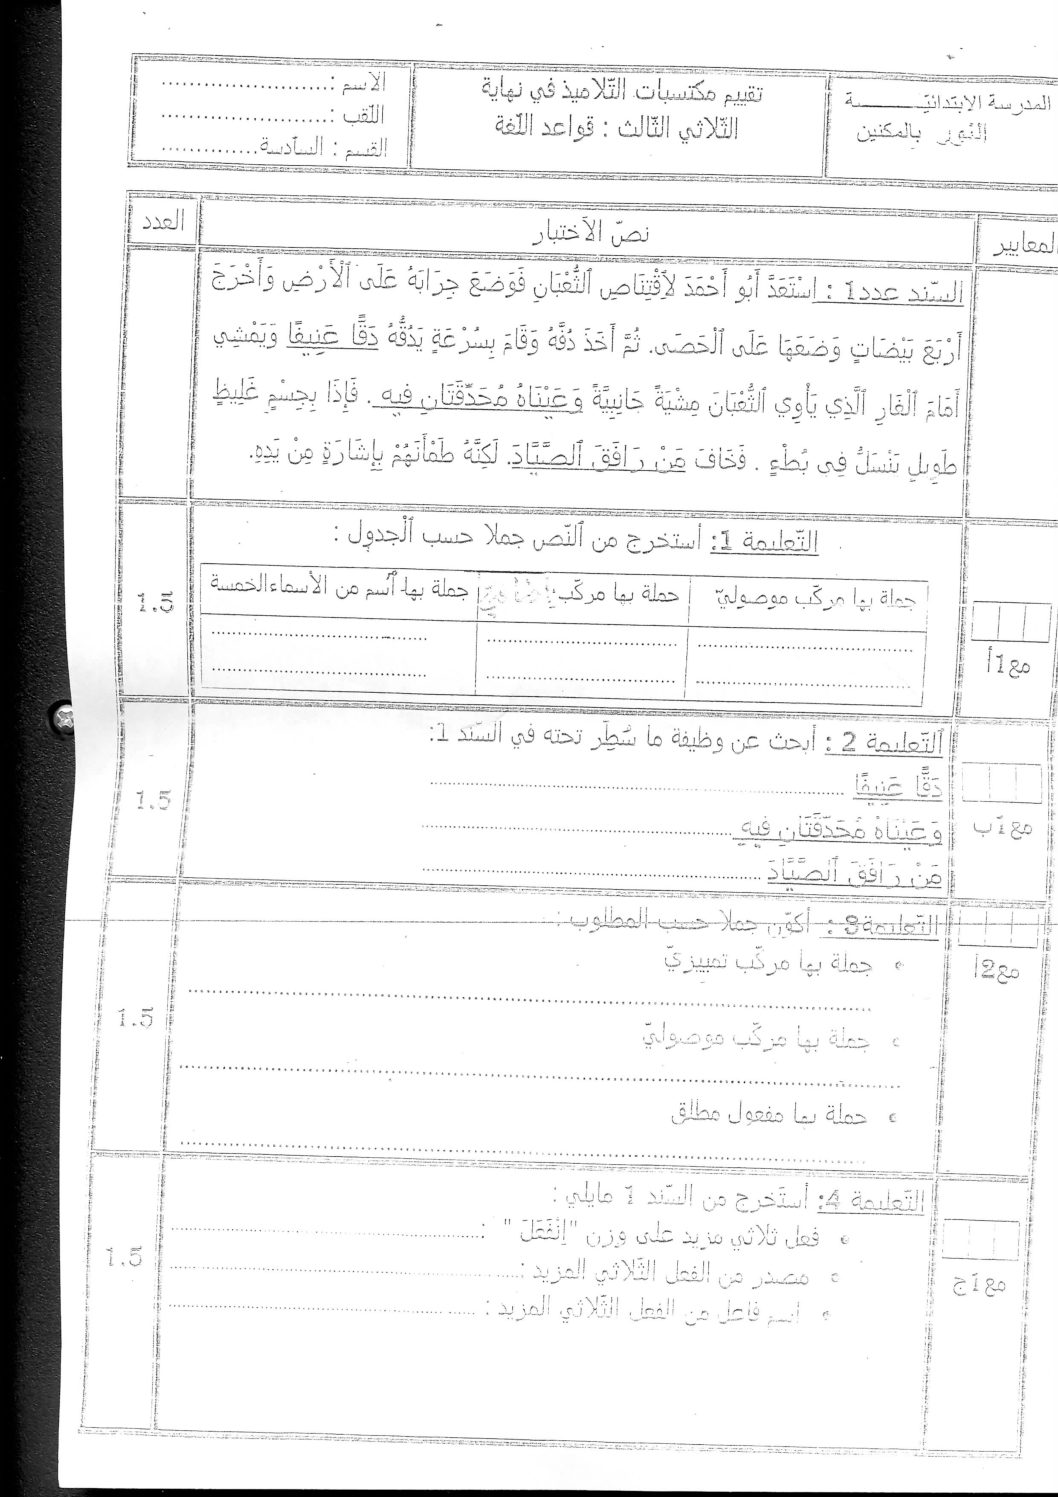 المدرسة الابتدائيـــــــة
النور بالمكنين
تقييم مكتسبات التّلاميذ في نهاية
الثّلاثي الثّالث : قواعد اللّغة
الاسم :.........................
اللّقب :.........................
القسم : السّادسة..............
المعايير
نصّ الاختبار
العدد
السّند عدد1 : اِسْتَعَدَّ أَبُو أَحْمَدَ لاِقْتِنَاصِ ٱلثُّعْبَانِ فَوَضَعَ جِرَابَهُ عَلَى ٱلْأَرْضِ وَأَخْرَجَ
أَرْبَعَ بَيْضَاتٍ وَضَعَهَا عَلَى ٱلْحَصَى. ثُمَّ أَخَذَ دُفَّهُ وَقَامَ بِسُرْعَةٍ يَدُقُّهُ دَقًّا عَنِيفًا وَيَمْشِي
أَمَامَ ٱلْغَارِ ٱلَّذِي يَأْوِي ٱلثُّعْبَانَ مِشْيَةً جَانِبِيَّةً وَعَيْنَاهُ مُحَدِّقَتَانِ فِيهِ . فَإِذَا بِجِسْمٍ غَلِيظٍ
طَوِيلٍ يَنْسَلُّ فِي بُطْءٍ . فَخَافَ مَنْ رَافَقَ ٱلصَّيَّادَ. لَكِنَّهُ طَمْأَنَهُمْ بِإِشَارَةٍ مِنْ يَدِهِ.
التّعليمة 1: أستخرج من ٱلنّص جملا حسب ٱلْجدول :
جملة بها مركّب موصوليّ
جملة بها مركّب
جملة بها ٱسم من الأسماء الخمسة
مع1أ
1.5
ٱلتّعليمة 2 : أبحث عن وظيفة ما سُطِّر تحته في السّند 1:
دَقًّا عَنِيفًا
وَعَيْنَاهُ مُحَدِّقَتَانِ فِيهِ
مَنْ رَافَقَ ٱلصَّيَّادَ
مع1ب
1.5
التّعليمة3 : أكوّن جملا حسب المطلوب :
• جملة بها مركّب تمييزيّ
• جملة بها مركّب موصوليّ
• جملة بها مفعول مطلق
مع2أ
1.5
التّعليمة 4: أستَخرج من السّند 1 مايلي :
• فعل ثلاثي مزيد على وزن "اِنْفَعَلَ" :
• مصدر من الفعل الثّلاثي المزيد :
• اسم فاعل من الفعل الثّلاثي المزيد :
مع1ج
1.5